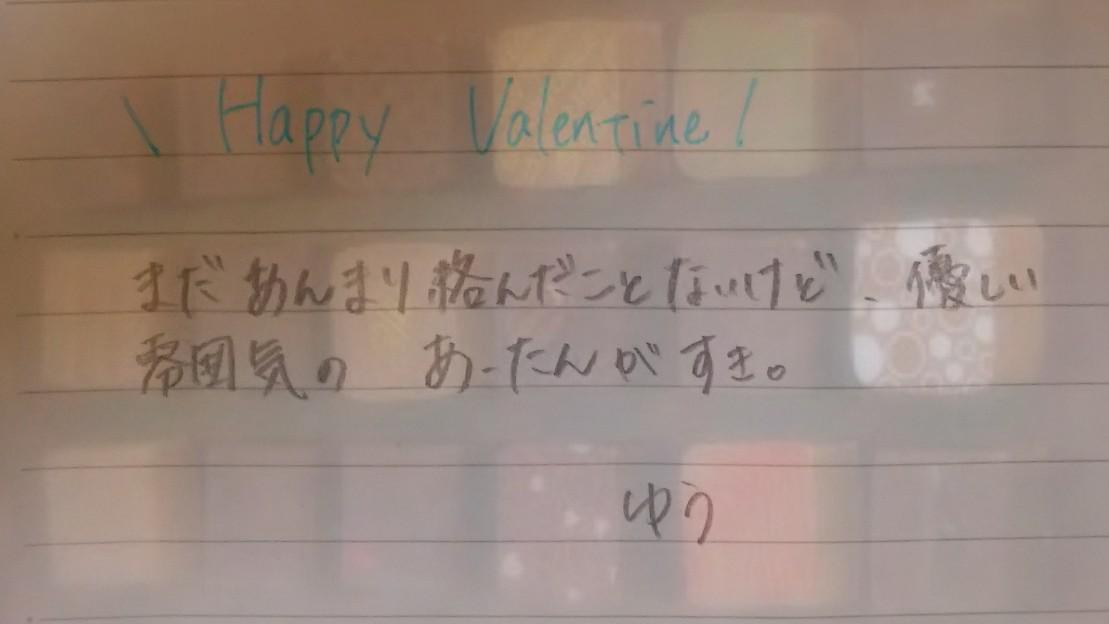 \ Happy Valentine!
まだあんまり絡んだことないけど、優しい
雰囲気の あーたんがすき。
ゆう